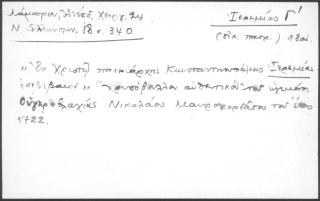 Λάμπρου, Ἀνέκδ. Χειρ. 24
Ν. Ἑλληνομν. 18 σ. 340
Ἱερεμίας Γ΄
(οἰκ. πατρ.) 18αἰ.
„Ἐν Χριστῷ πατριάρχης Κωνσταντινουπόλεως Ἱερεμίας
ἐπιβεβαιοῖ" „χρυσόβουλλον αὐθεντικὸν" τοῦ ἡγεμόνος
Οὑγκροβλαχίας Νικολάου Μαυροκορδάτου τοῦ ἔτους
1722.